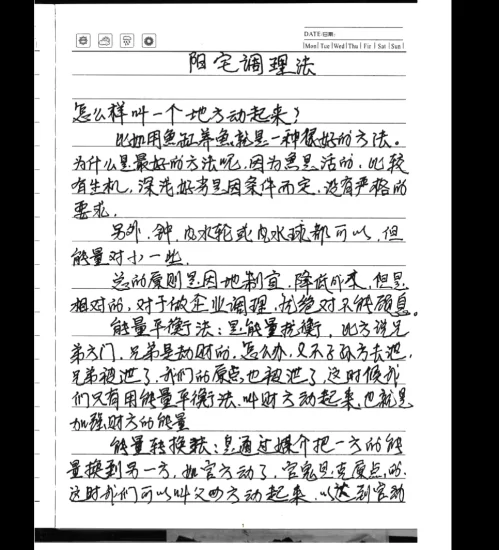 DATE/日期:
Mon Tue Wed Thu Fri Sat Sun
阳宅调理法
怎么样叫一个地方动起来?
比如用鱼缸养鱼,就是一种很好的方法。
为什么是最好的方法呢,因为鱼是活的,比较
有生机,深浅好考是因条件而定,没有严格的
要求。
另外,钟,风水轮或风水球都可以,但
能量对小一些。
总的原则是因地制宜,降低成本,但是
相对的,对于做企业调理,就绝对不能顾息。
能量平衡法:是能量抗衡,比方说兄
弟方门,兄弟是劫财的,怎么办,又不子孙方去泄,
兄弟被泄了,我们的原点也被泄了,这时候我
们只有用能量平衡法,叫财方动起来,也就是
加强财方的能量
能量转换法:是通过媒介把一方的能
量换到另一方,如官方动了,官鬼是克原点的,
这时我们可以叫父母方动起来,以达到官动
1